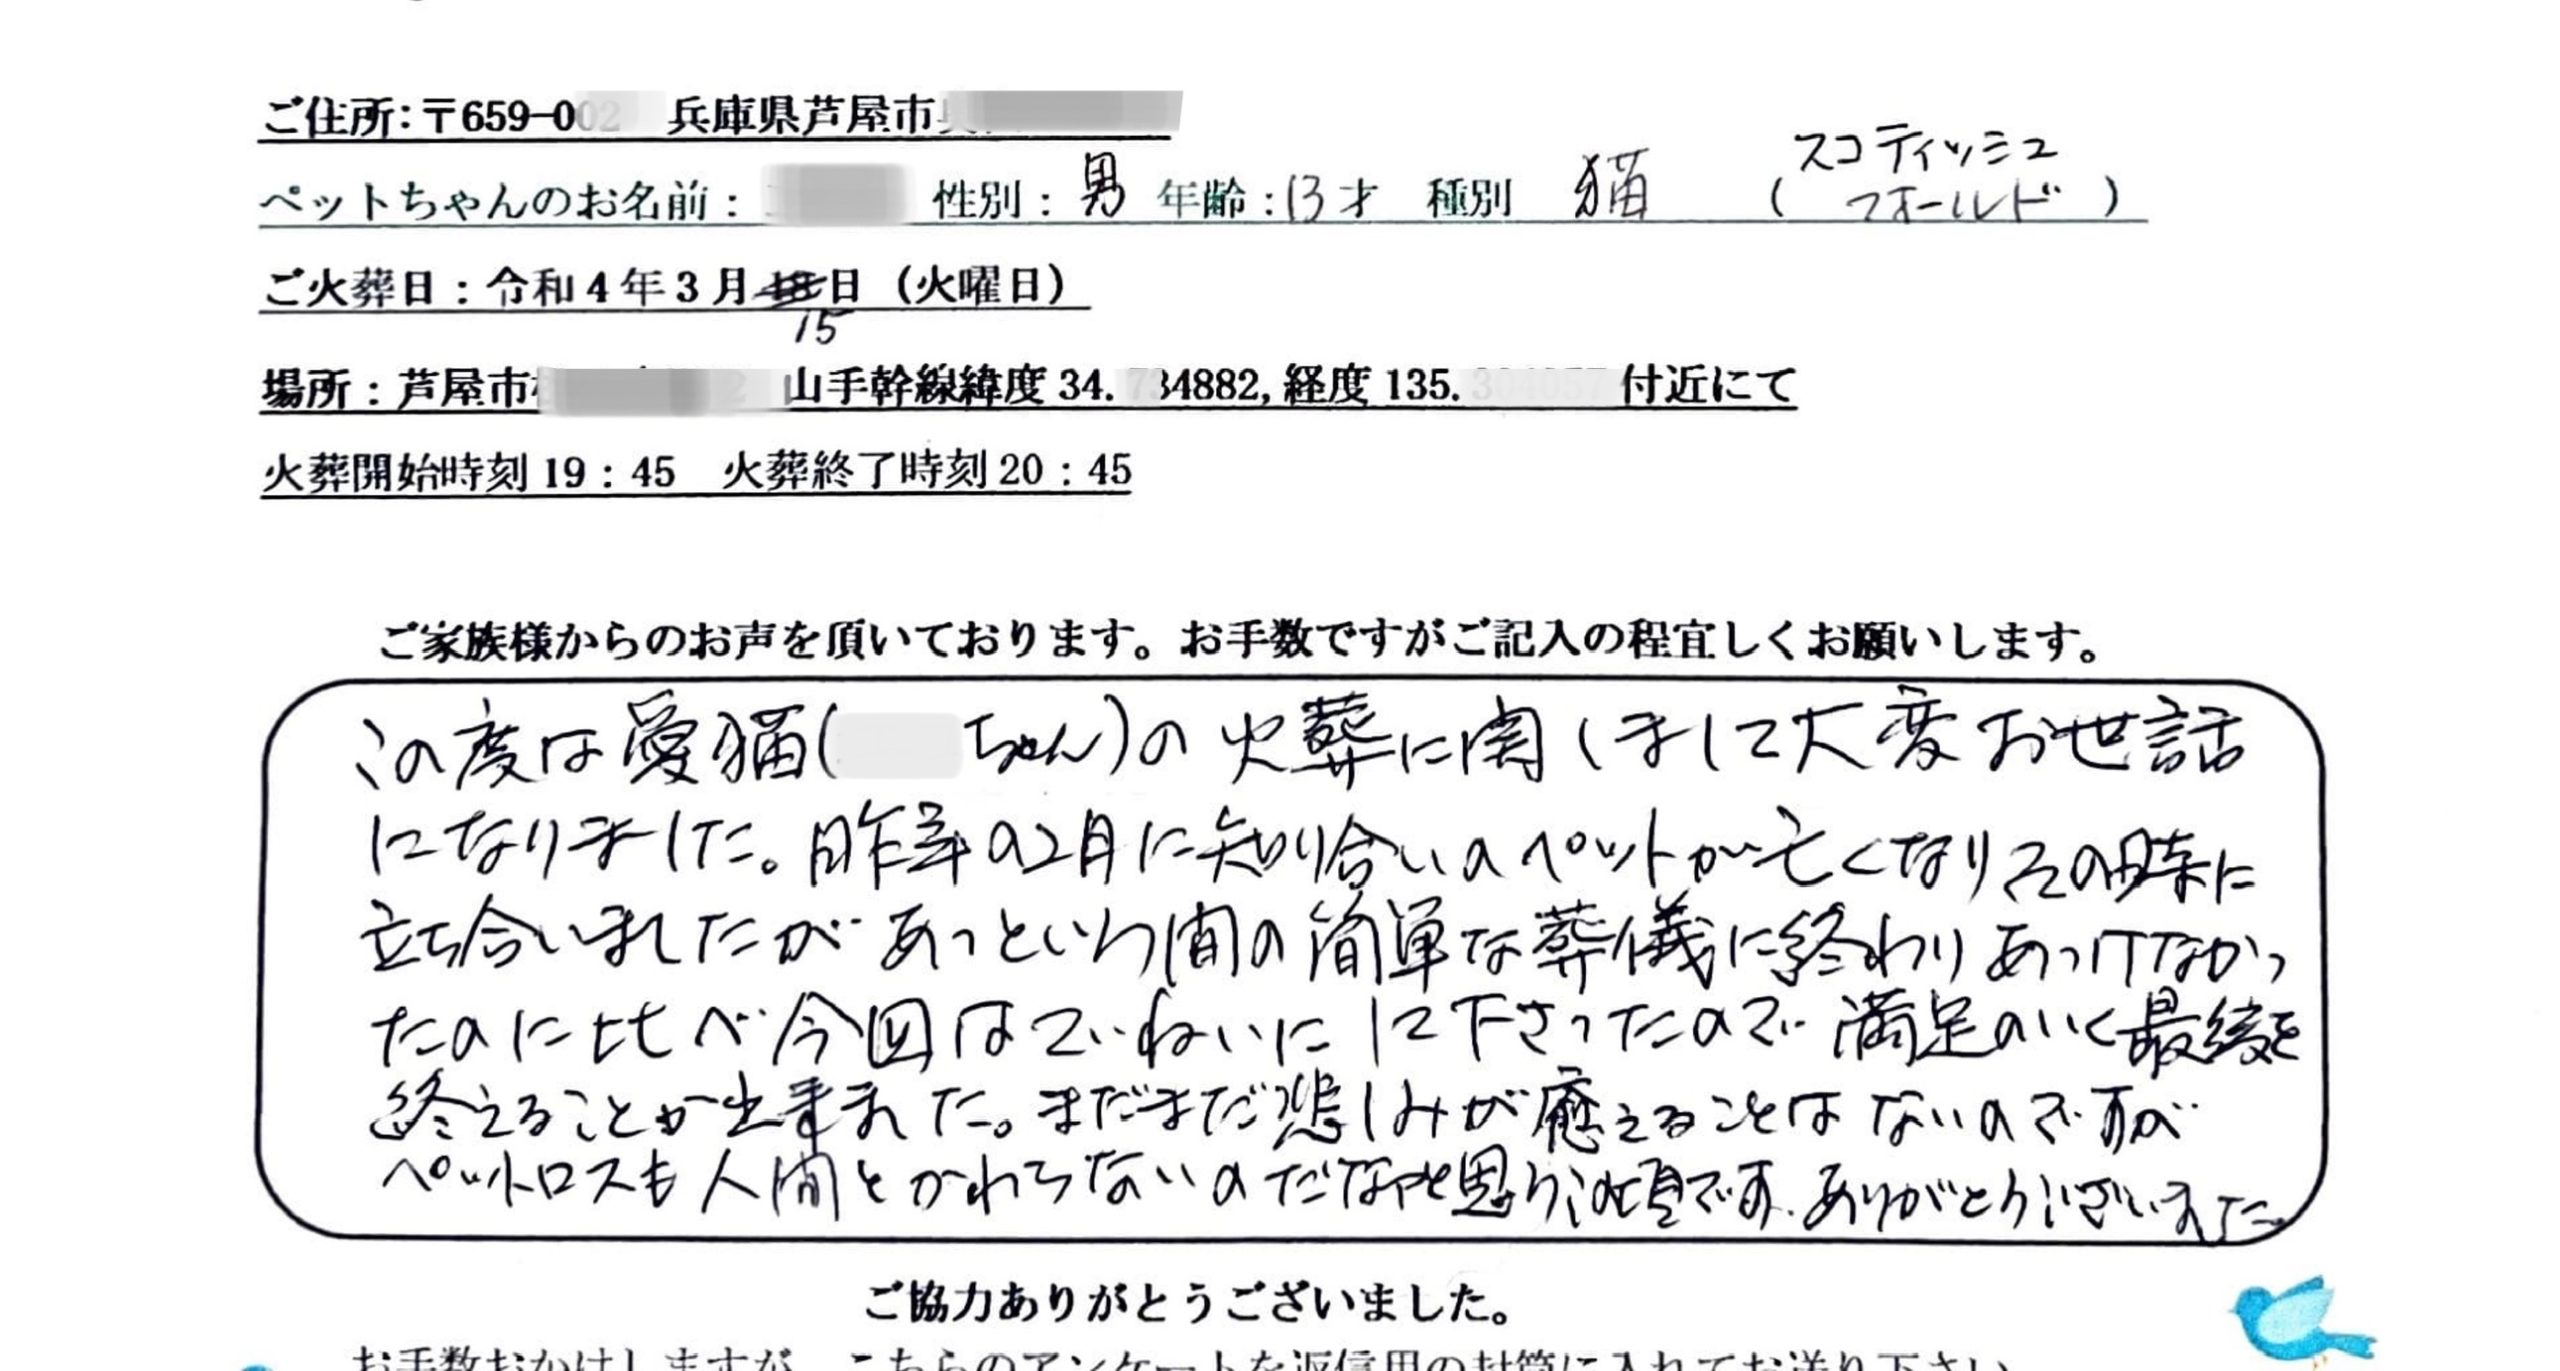 ご住所：〒659-002 兵庫県芦屋市
ペットちゃんのお名前： 性別：男 年齢：13才 種別 猫 (スコティッシュフォールド)
ご火葬日：令和4年3月日（火曜日）
15
場所：芦屋市 山手幹線緯度34.734882, 経度135. 付近にて
火葬開始時刻19：45 火葬終了時刻20：45
ご家族様からのお声を頂いております。お手数ですがご記入の程宜しくお願いします。
この度は愛猫( ちゃん)の火葬に関しまして大変お世話
になりました。昨年の2月に知り合いのペットが亡くなりその時に
立ち合いましたがあっという間の簡単な葬儀に終わりあっけなかっ
たのに比べ今回はていねいにして下さったので満足のいく最後を
終えることが出来ました。まだまだ悲しみが癒えることはないのですが
ペットロスも人間とかわらないのだなぁと思う此頃です。ありがとうございました
ご協力ありがとうございました。
お手数おかけしますが、こちらのアンケートを返信用の封筒に入れてお送り下さい